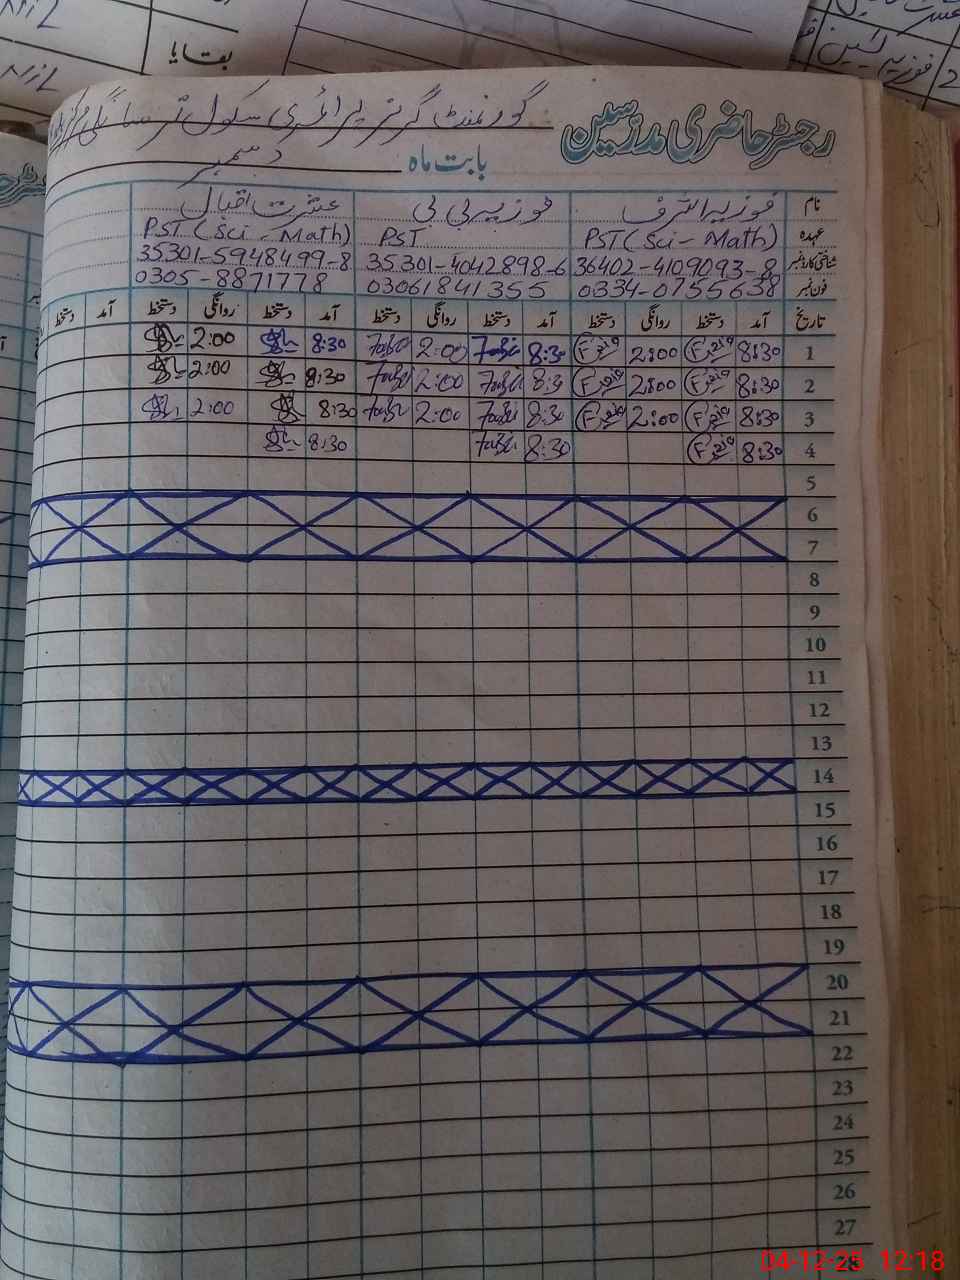 بقایا
رجسٹر حاضری مدرسین گورنمنٹ گرلز پرائمری سکول
بابت ماہ دسمبر
نام فوزیہ اشرف فوزیہ بی بی عشرت اقبال
عہدہ PST (Sci - Math) PST PST (Sci - Math)
شناختی کارڈ نمبر 36402-4109093-8 35301-4042898-6 35301-5948499-8
فون نمبر 0334-0755638 03061841355 0305-8871778
تاریخ آمد دستخط روانگی دستخط آمد دستخط روانگی دستخط آمد دستخط روانگی دستخط آمد دستخط
1 8:30 2:00 8:30 2:00 8:30 2:00
2 8:30 2:00 8:30 2:00 8:30 2:00
3 8:30 2:00 8:30 2:00 8:30 2:00
4 8:30 8:30 8:30
5
6
7
8
9
10
11
12
13
14
15
16
17
18
19
20
21
22
23
24
25
26
27
28
04-12-25 12:18